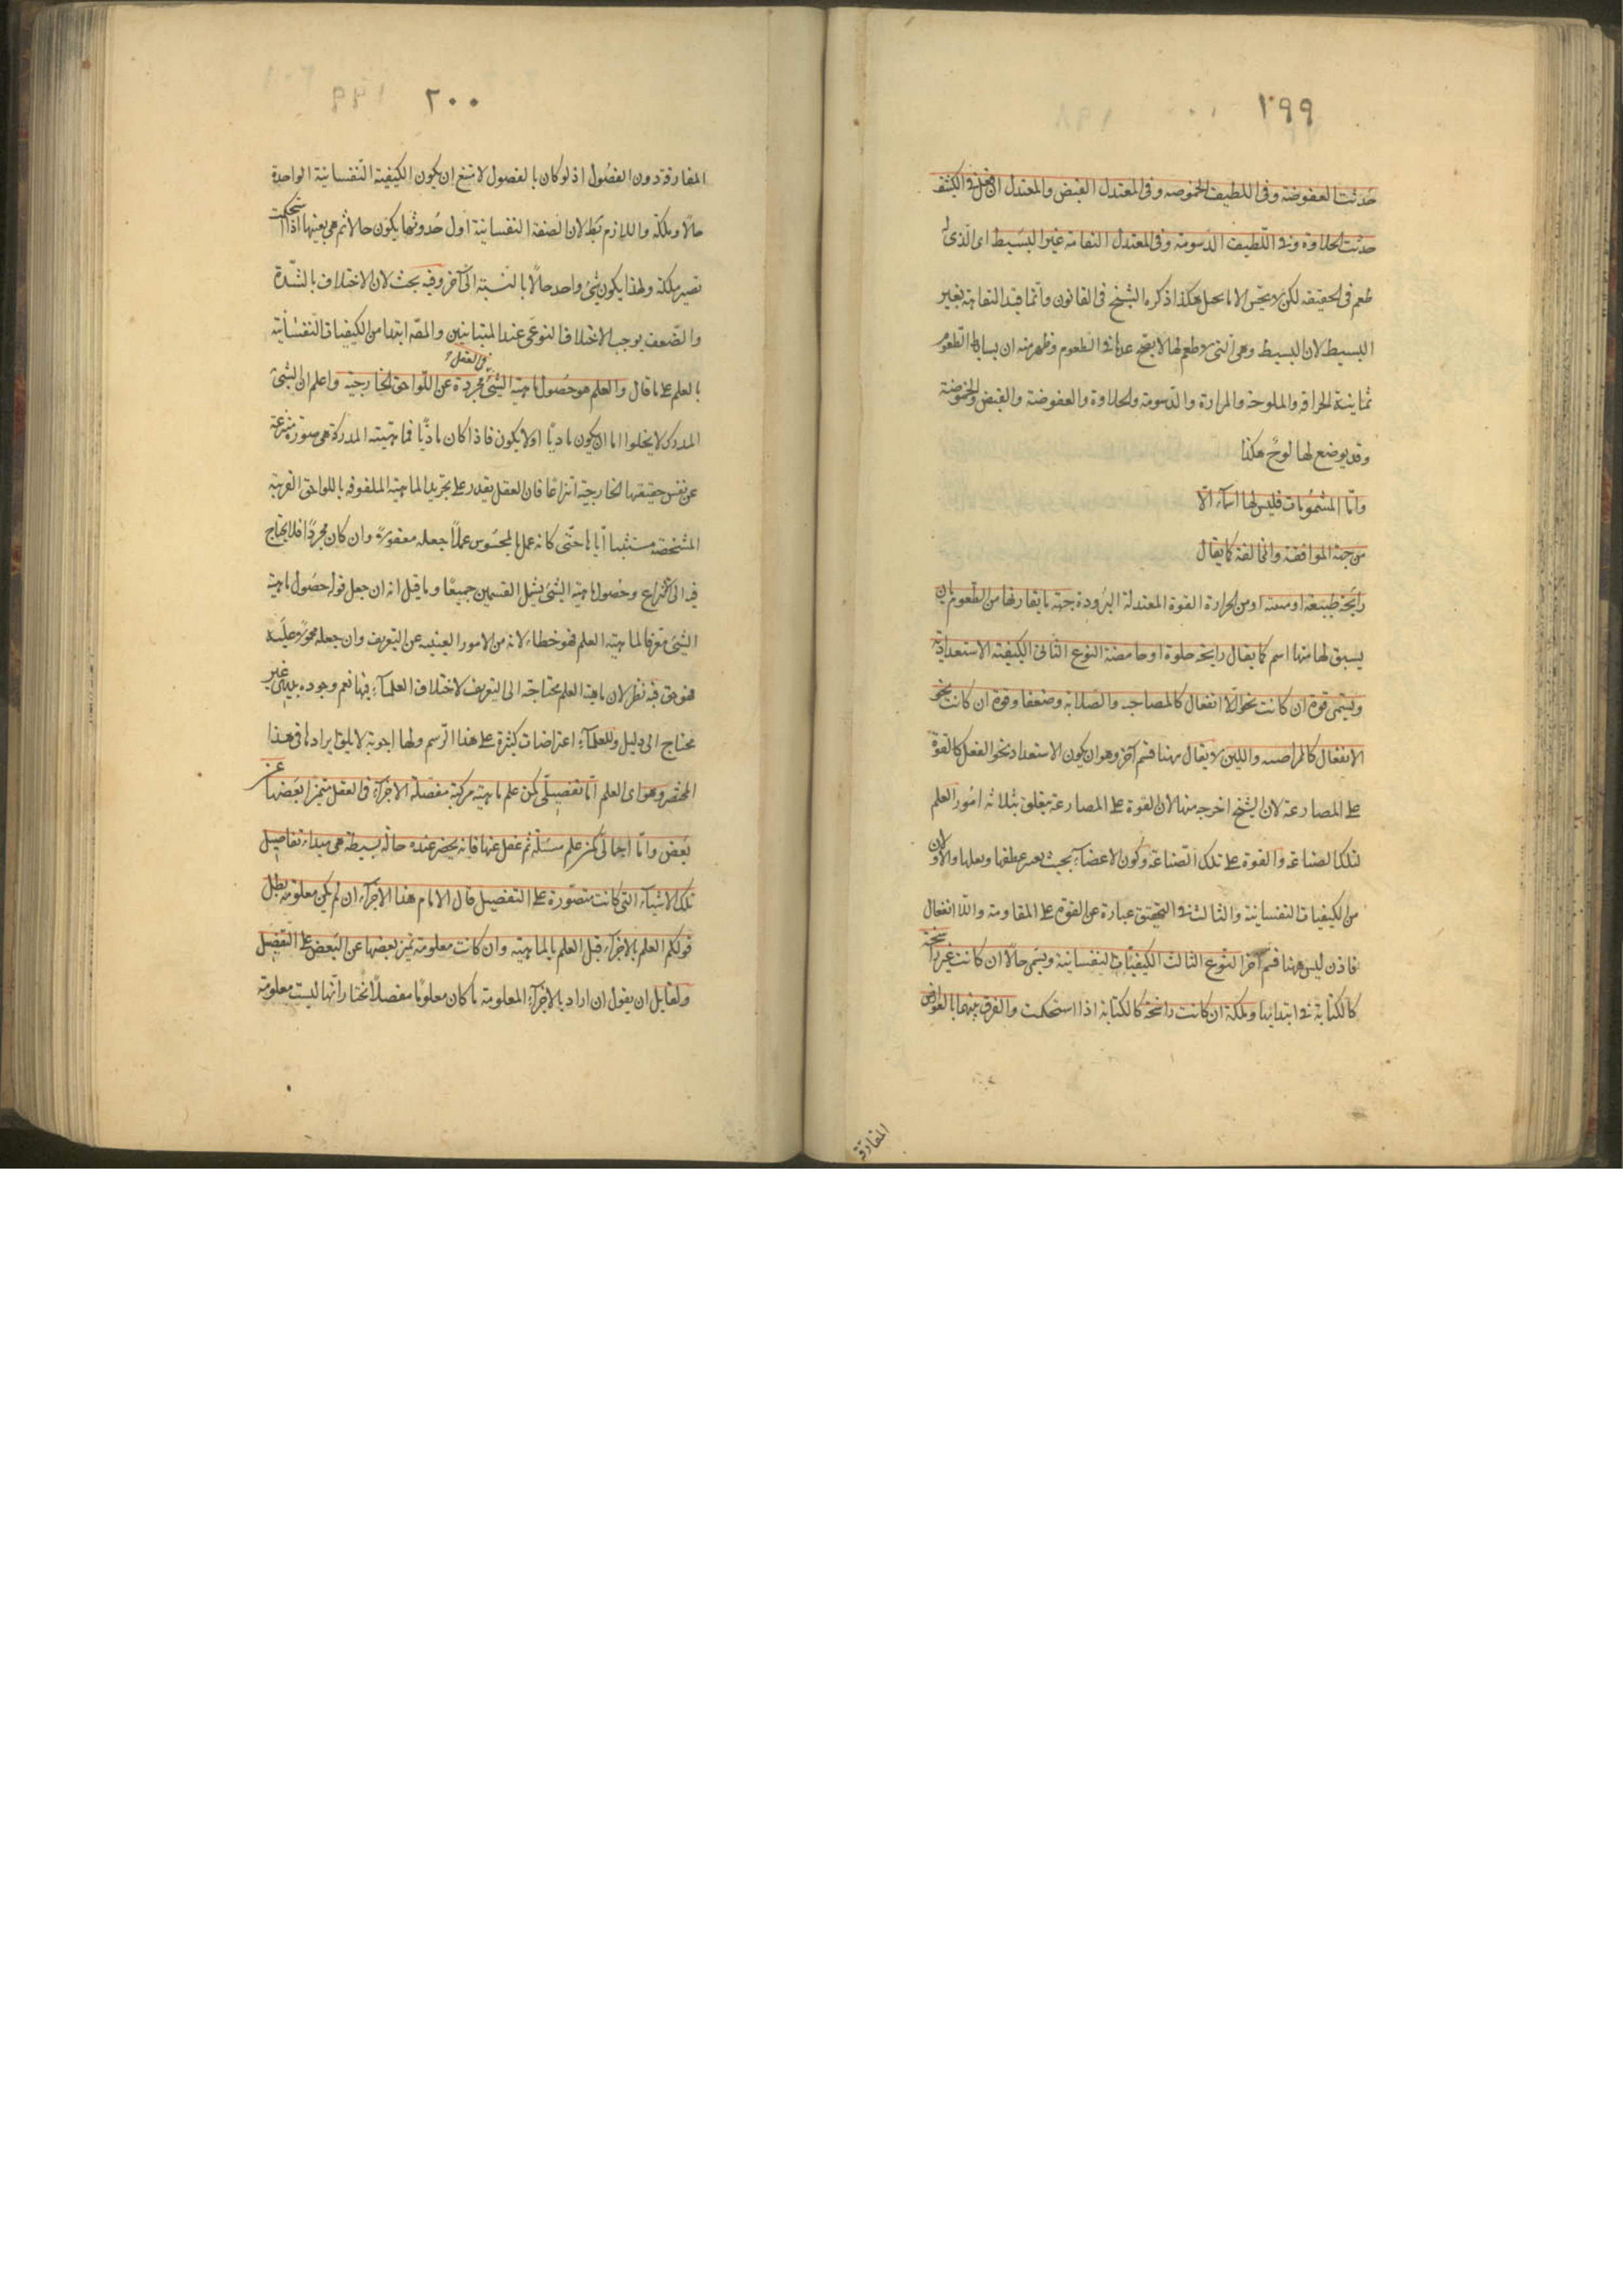 ١٩٩
حدثت العفوضة وفى اللطيف الحموضه وفى المعتدل القبض والمعتدل ان فعل فى الكثيف
حدثت الحلاوة وفى اللطيف الدسومة وفى المعتدل التفاهة غير البسيط اى الذى له
طعم فى الحقيقه لكن لا يحس الا بالحيل هكذا ذكره الشيخ فى القانون وانما قيد التفاهة بغير
البسيط لان البسيط وهى التى لا طعم لها لا يصح عدها فى الطعوم وظهر منه ان بسايط الطعوم
ثمانية الحرافة والملوحة والمرارة والدسومة والحلاوة والعفوضة والقبض والحموضة
وقد يوضع لها لوح هكذا
وامّا المشمومات فليس لها اسماء الّا
من جهة الموافقة والمخالفة كما يقال
رايحة طيبة او منتنة او من الحرارة القوة المعتدلة البرودة جهة ما يقارنها من الطعوم بان
يسبق لها منها اسم كما يقال رايحة حلوة او حامضة النوع الثانى الكيفية الاستعدادية
ويسمى قوة ان كانت نحو اللا انفعال كالمصاحية والصلابة وضعفا ولا قوة ان كانت نحو
الانفعال كالممراضية واللين لا يقال ههنا قسم آخر وهو ان يكون الاستعداد نحو الفعل كالقوة
على المصارعة لان الشيخ اخرجه منها لان القوة على المصارعة يتعلق بثلاثة امور العلم
لتلك الصناعة والقوة على تلك الصناعة وكون الاعضاء بحيث يعسر عطفها ونقلها والاولان
من الكيفيات النفسانية والثالث فى التحقيق عبارة عن القوة على المقاومة واللا انفعال
فاذن ليس ههنا قسم آخر النوع الثالث الكيفيات النفسانية ويسمى حالا ان كانت غير راسخة
كالكتابة فى ابتدائها وملكة ان كانت راسخة كالكتابة اذا استحكمت والفرق بينهما بالعوارض
المفارقة
٢٠٠
المفارقة دون الفصول اذ لو كان بالفصول لامتنع ان يكون الكيفية النفسانية الواحدة
حالا وملكة واللازم بط لان الصفة النفسانية اول حدوثها يكون حالا ثم هى بعينها اذا استحكمت
تصير ملكة ولهذا يكون شئ واحد حالًا بالنسبة الى آخر وفيه بحث لان الاختلاف بالشدّة
والضعف يوجب الاختلاف النوعى عند المتباينين والمصّ ابتدا من الكيفيات النفسانية
بالعلم على ما قال والعلم هو حصول ماهية الشئ مجردة عن اللواحق الخارجية واعلم ان الشئ
فى العقل
المدرك لا يخلوا اما ان يكون ماديًا او لا يكون فاذا كان ماديًا فماهيته المدركة هى صورة منتزعة
عن نفس حقيقتها الخارجية انتزاعًا فان العقل يقدر على تجريد الماهية الملفوفة باللواحق الغريبة
المشخصة مستثبتا اياها حتّى كانه عمل بالمحسوس عملًا جعله معقولا وان كان مجردًا فلا يحتاج
فيه الى انتزاع وحصول ماهية الشئ يشمل القسمين جميعًا وما قيل انه ان جعل قوله حصول ماهية
الشئ معرفا لماهية العلم فهو خطاء لانه من الامور الغنية عن التعريف وان جعله محمولا عليه
فهو حق فيه نظر لان ماهية العلم محتاجة الى التعريف لاختلاف العلماء فيها نعم وجوده بديهى غير
محتاج الى دليل وللعلماء اعتراضات كثيرة على هذا الرسم ولها اجوبة لا يليق ايرادها فى هذا
المختصر وهو اى العلم امّا تفصيلى كمن علم ماهية مركبة مفصلة الاجزاء فى العقل متميزا بعضها عن
بعض وامّا اجمالى كمن علم مسئلة ثم غفل عنها فانه يحضر عنده حالة بسيطة هى مبداء تفاصيل
تلك الاشياء التى كانت متصورة على التفصيل قال الامام هذا الاجزاء ان لم يكن معلومة بطل
قولكم العلم بالاجزاء قبل العلم بالماهية وان كانت معلومة تميز بعضها عن البعض على التفصيل
ولقايل ان يقول ان اراد بالاجزاء المعلومة ما كان معلومًا مفصلًا نختار انها ليست معلومة